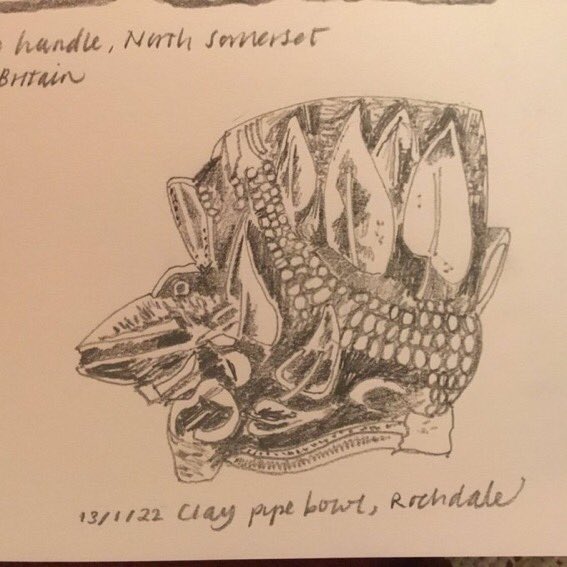 handle, North Somerset
Britain
13/1/22 Clay pipe bowl, Rochdale